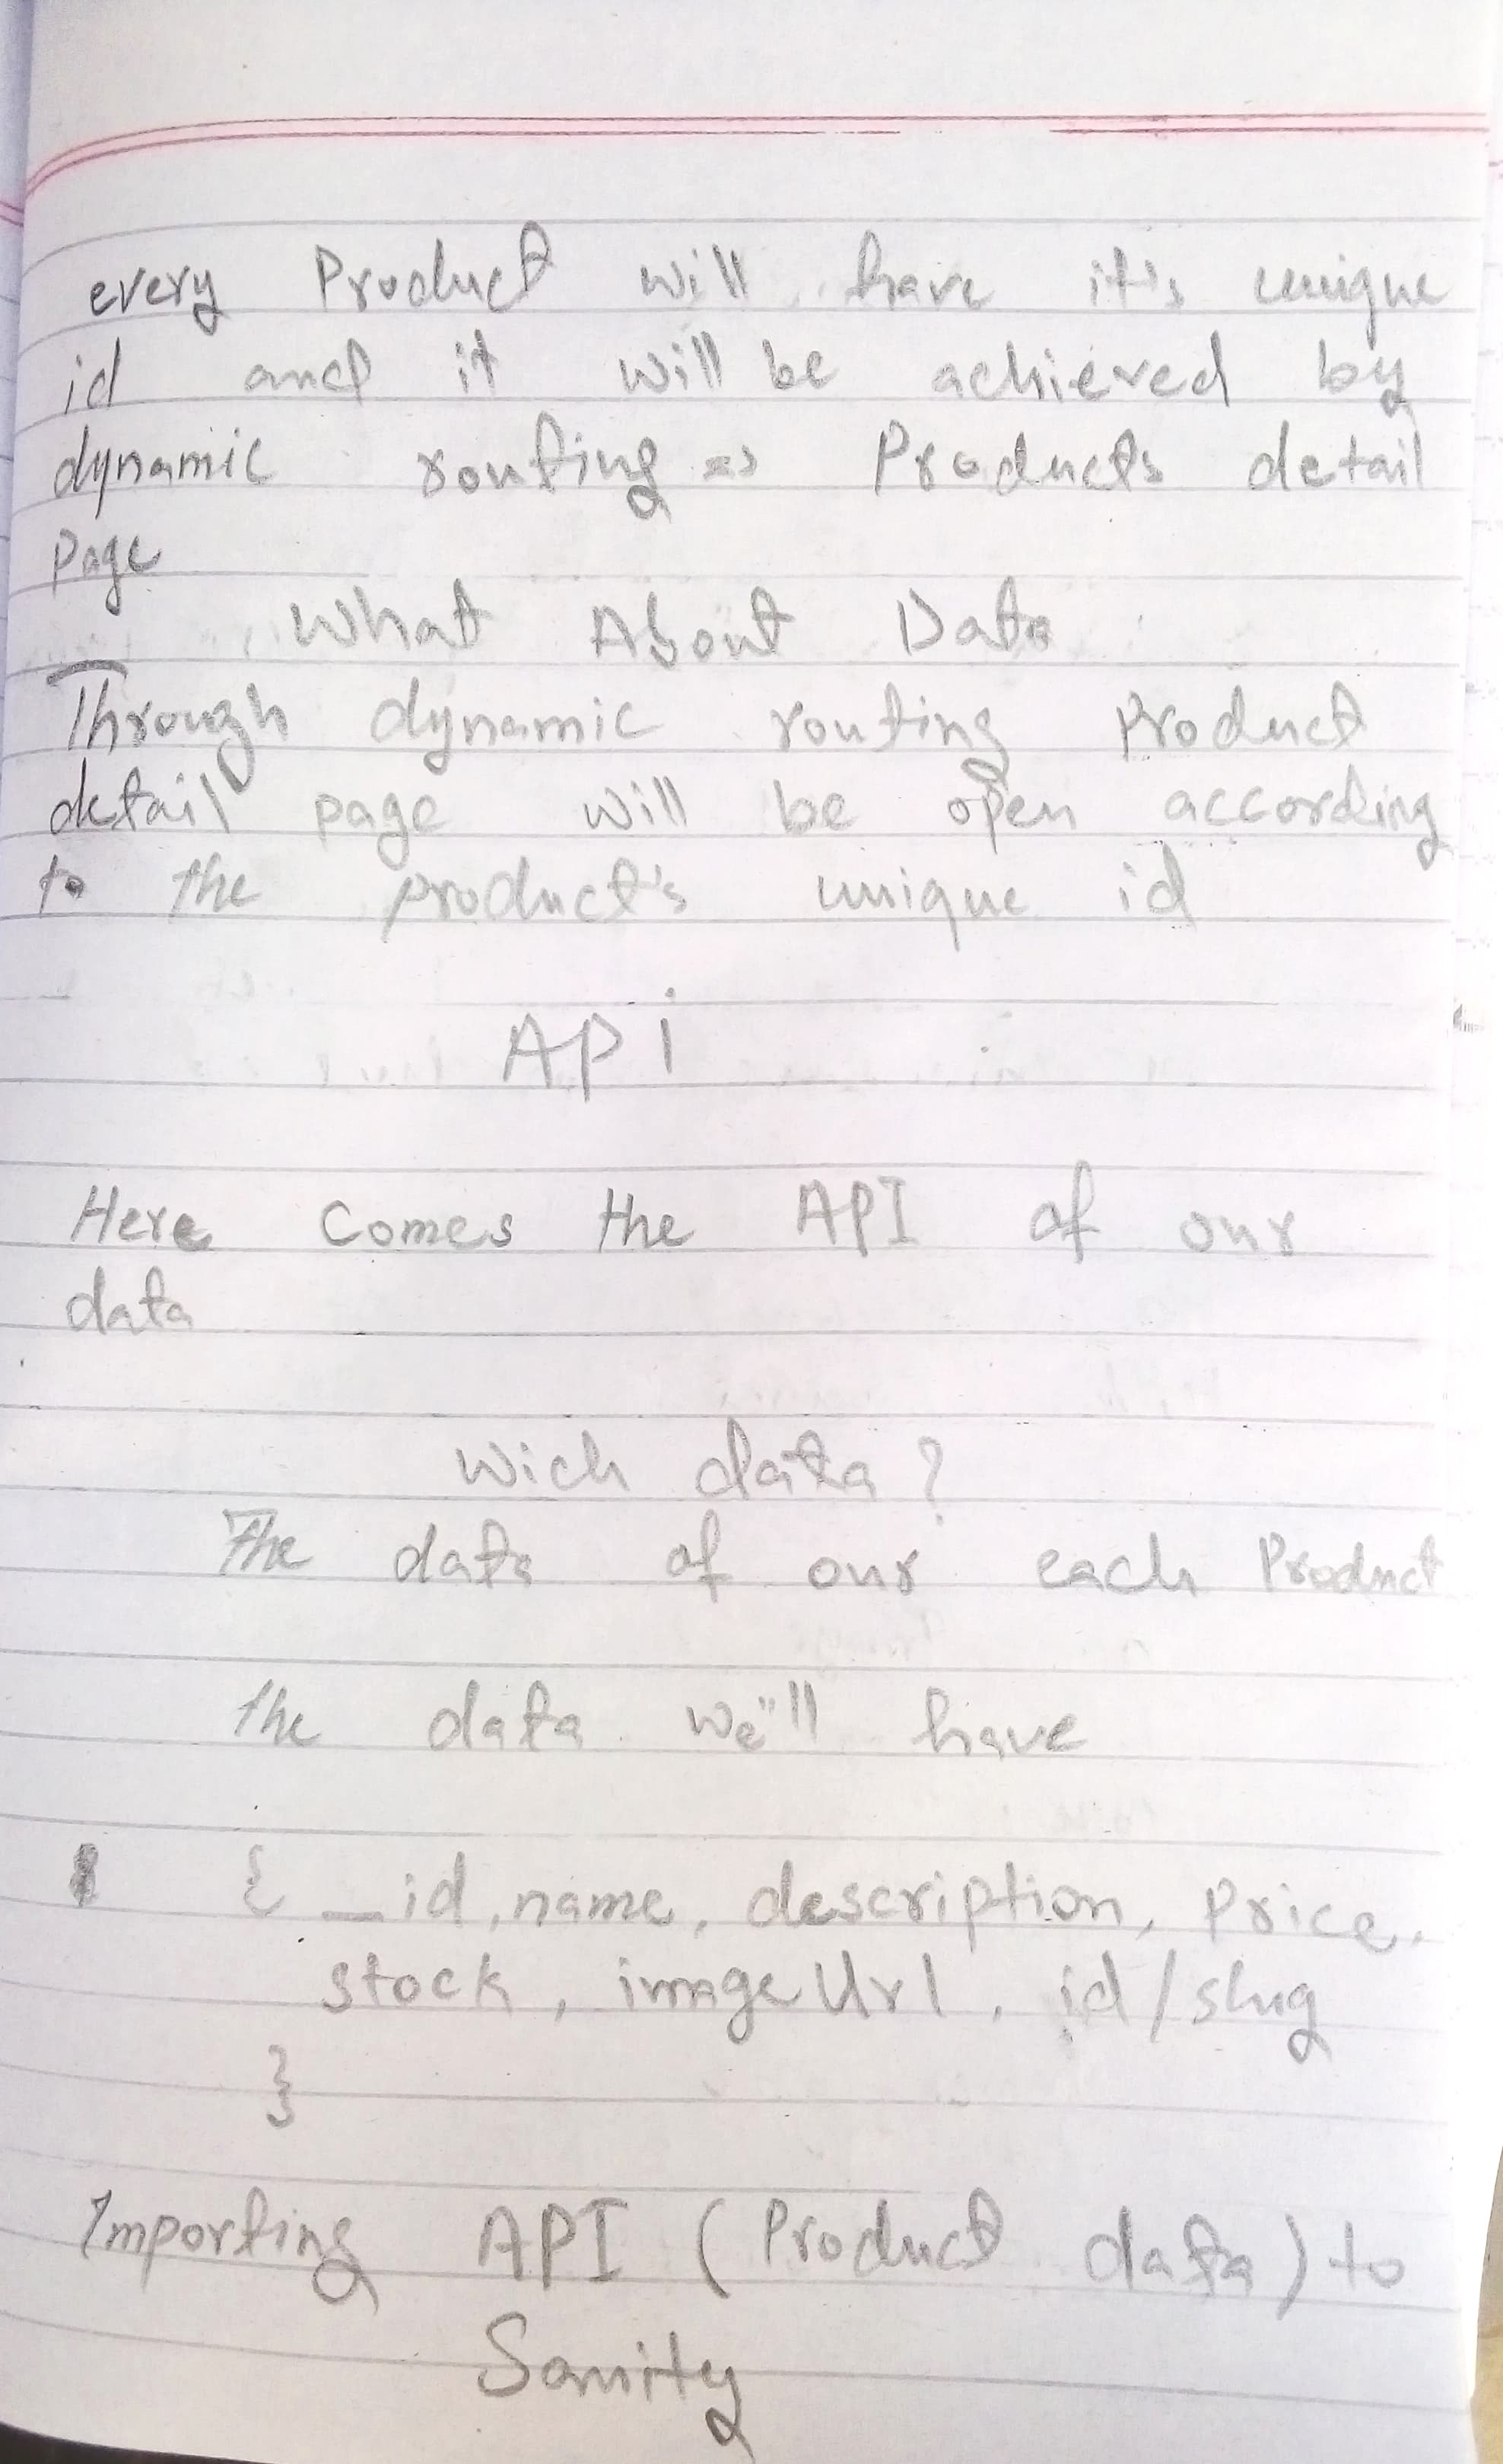 every Product will have it's unique
id and it will be achieved by
dynamic routing => Products detail
Page
What About Data
Through dynamic routing Product
detail page will be open according
to the product's unique id
APi
Here Comes the API of our
data
Wich data ?
The data of our each Product
the data we"ll have
{ _id, name, description, Price.
stock, imageUrl, id/slug
}
Importing API (Product data) to
Sanity